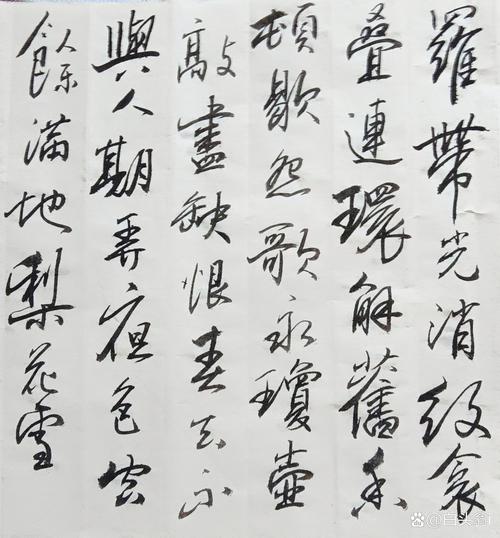 羅帶光消紋衾
疊連環解舊香
頓歇怨歌永瓊壺
敲盡缺恨春去不
與人期弄夜色空
餘滿地梨花雪
百家号/白头翁